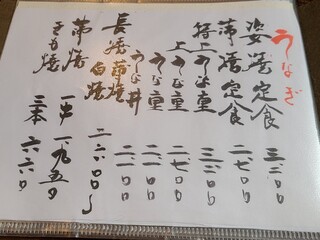 うなぎ
姿焼定食 三二〇〇
蒲焼定食 二七〇〇
特上うな重 三二〇〇
上うな重 二七〇〇
うな重 二二〇〇
うな丼 二二〇〇
長焼 蒲焼 白焼 二六〇〇
蒲焼 一串 一九五〇
きも焼 三本 六六〇